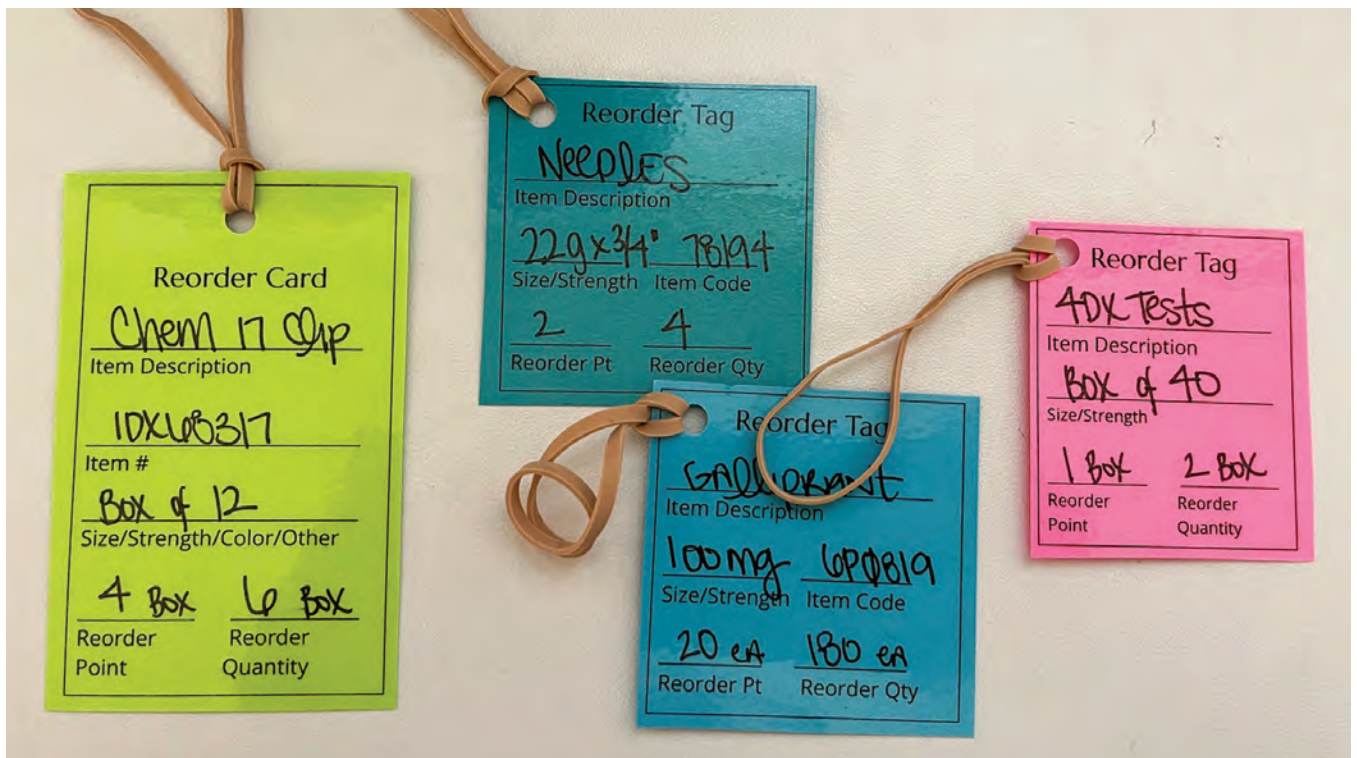 Reorder Card
Chem 17 Clip
Item Description
IDX68317
Item #
Box of 12
Size/Strength/Color/Other
4 Box 6 Box
Reorder Reorder
Point Quantity
Reorder Tag
Needles
Item Description
22g x 3/4" 78194
Size/Strength Item Code
2 4
Reorder Pt Reorder Qty
Reorder Tag
GAlliprant
Item Description
100mg 6P0819
Size/Strength Item Code
20 eA 180 eA
Reorder Pt Reorder Qty
Reorder Tag
4DX Tests
Item Description
Box of 40
Size/Strength
1 Box 2 Box
Reorder Reorder
Point Quantity